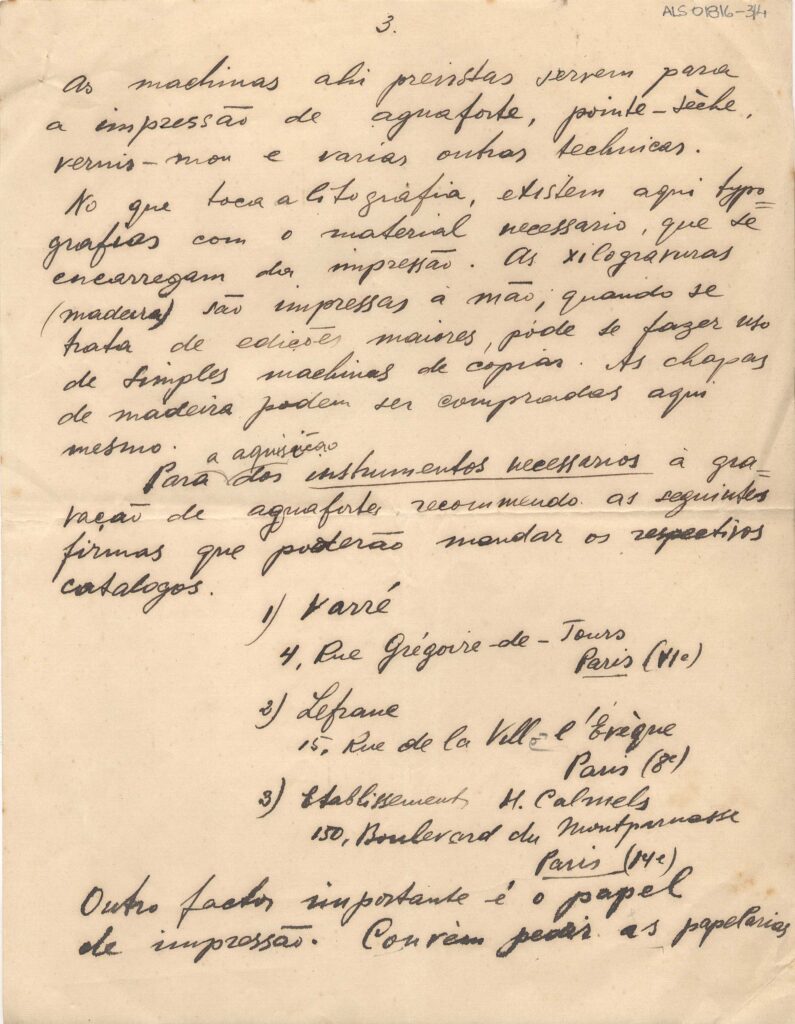 ALS 01816-3/4
3.
As machinas ahi previstas servem para
a impressão de aguaforte, pointe-sèche,
vernis-mou e varias outras technicas.
No que toca a litografia, existem aqui typo-
grafias com o material necessario, que se
encarregam da impressão. As xilogravuras
(madeira) são impressas à mão; quando se
trata de edições maiores, pode se fazer uso
de simples machinas de copiar. As chapas
de madeira podem ser compradas aqui
mesmo.
a aquisição
Para dos instrumentos necessarios à gra-
vação de aguafortes recommendo as seguintes
firmas que poderão mandar os respectivos
catalogos.
1) Varré
4, Rue Grégoire-de-Tours
Paris (VIe)
2) Lefranc
15, Rue de la Ville l'Évèque
Paris (8e)
3) Etablissements H. Calmels
150, Boulevard du Montparnasse
Paris (14e)
Outro factor importante é o papel
de impressão. Convèm pedir as papelarias